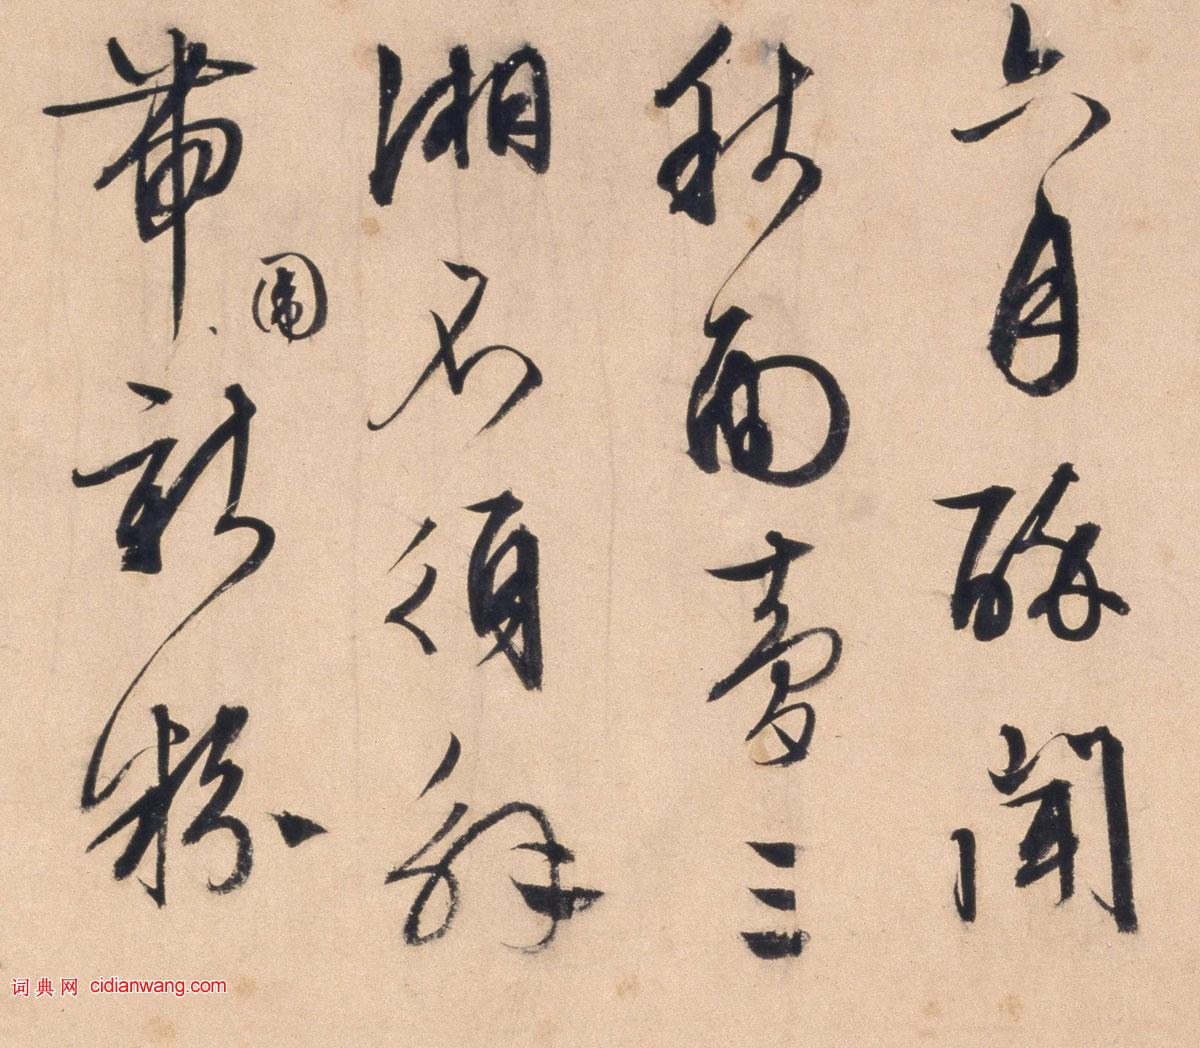 六月醉聞
秋雨夢三
湘不須解
帶圍新粉
词典网 cidianwang.com